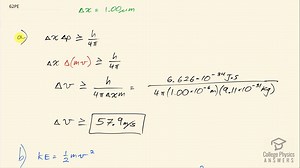 62PE
Δx = 1.00 μm
a) Δx Δp ≥ h/4π
Δx Δ(mv) ≥ h/4π
Δv ≥ h/4πΔxm = 6.626×10⁻³⁴ J·s / 4π(1.00×10⁻⁶ m)(9.11×10⁻³¹ kg)
Δv ≥ 57.9 m/s
b) KE = ½mv²
College Physics
ANSWERS